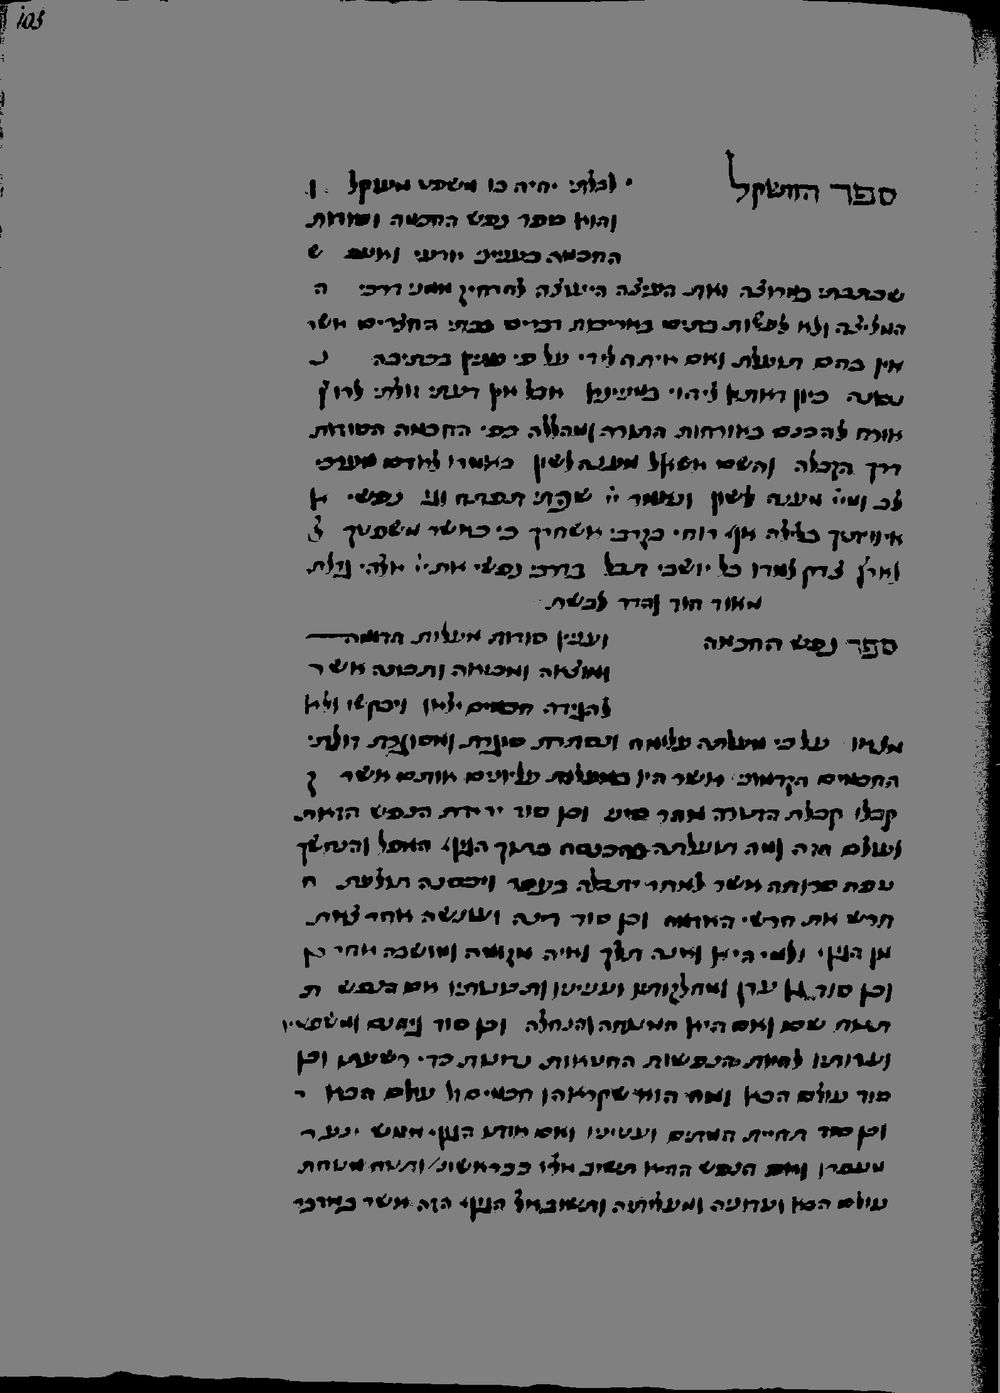 103
ספר המשקל לבלתי יהיה בו משפט מעוקל
והוא ספר נפש החכמה וסודות
החכמה בעניני יודעי
שכתבתי במרוצה ואת העיצה היעוצה להרחיק ממני דרכי ה
המליצה ולא לעשות בתים באריכות דברים בבתי החצרים אשר
אין בהם תועלת ואם איתה לידי על פי בכתיבה
כיון דאותא ליהוי אבל אין דעתי זולתי לרוץ
אורח להכנס באורחות התורה ומהללה כפי החכמה הסודות
דרך הקבלה והשם אשאל מענה לשון כאמרו לאדם מערכי
לב ומיי מענה לשון ונאמר יי שפתי תפתח וגו נפשי א
איויתיך בלילה אף רוחי בקרבי אשחרך כי כאשר משפטיך ל
לארץ צדק למדו כל יושבי תבל ברכי נפשי את יי אלהי גדלת
מאוד הוד והדר לבשת
ספר נפש החכמה ועניין סודות מעלות
ומוצאה ומבואה ותכונה אשר
להגידה חכמים ילאו ויבקשו ולא
מצאו על כי מעלתה עליונה ונסתרת סוגרת ומסוגרת זולתי
החכמים הקדמוני אשר היו במעלות עליונים אותם אשר ק
קבלו קבלת התורה מהר סיני וכן סוד ירידת הנפש הזאת
ועולם הזה ומה תועלתה בהכנסה בתוך הגוף האפל והנחשך
טפה סרוחה אשר לאחר יתבלה בעפר ויכסנה תולעת ח
חרש את חרשי האדמה וכן סוד דינה ועונשה אחר צאת
מן הגוף ולמי היא ואנה תלך ואיה מקומה ומושבה אחרי כן
וכן סוד גן עדן ומחלקותיו ועניינו אם הנפש ת
תנוח שם ואם היא המנוחה והנחלה וכן סוד גיהנם ומשפטיו
לחמת הנפשות החטאות כדי רשעתן וכן
סוד עולם הבא ומה הוא שקראהו חכמים ז"ל עולם הבא
וכן סוד תחיית המתים ועניינו ואם הגוף
מעפרו ואם הנפש ההיא תשוב אליו כבראשונה
עולם הבא ועדוניה ומעלותיה ותשוב אל הגוף הזה אשר